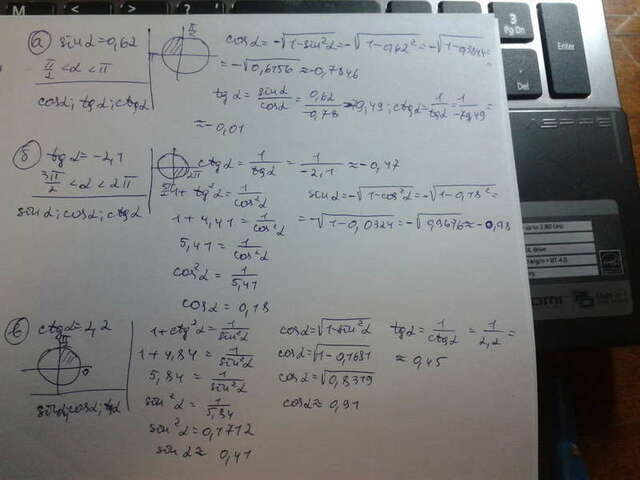 а) sin α = 0,62
π/2 < α < π
cos α; tg α; ctg α
π/2
cos α = -√(1-sin²α) = -√(1-0,62²) = -√(1-0,3844) =
= -√0,6156 ≈ -0,7846
tg α = sin α/cos α = 0,62/-0,78 ; ctg α = 1/tg α = 1/-79,49 =
≈ -0,01
б) tg α = -2,1
3π/2 < α < 2π
sin α; cos α; ctg α
2π
ctg α = 1/tg α = 1/-2,1 ≈ -0,47
1 + tg²α = 1/cos²α
1 + 4,41 = 1/cos²α
5,41 = 1/cos²α
cos²α = 1/5,41
cos α = 0,18
sin α = -√(1-cos²α) = -√(1-0,18²) =
= -√(1-0,0324) = -√0,9676 ≈ -0,98
в) ctg α = 2,2
0
sin α; cos α; tg α
1 + ctg²α = 1/sin²α
1 + 4,84 = 1/sin²α
5,84 = 1/sin²α
sin²α = 1/5,84
sin²α = 0,1712
sin α ≈ 0,41
cos α = √(1-sin²α)
cos α = √(1-0,1681)
cos α = √0,8319
cos α ≈ 0,91
tg α = 1/ctg α = 1/2,2 =
≈ 0,45
3
Pg Dn
Enter
Del
ASPIRE